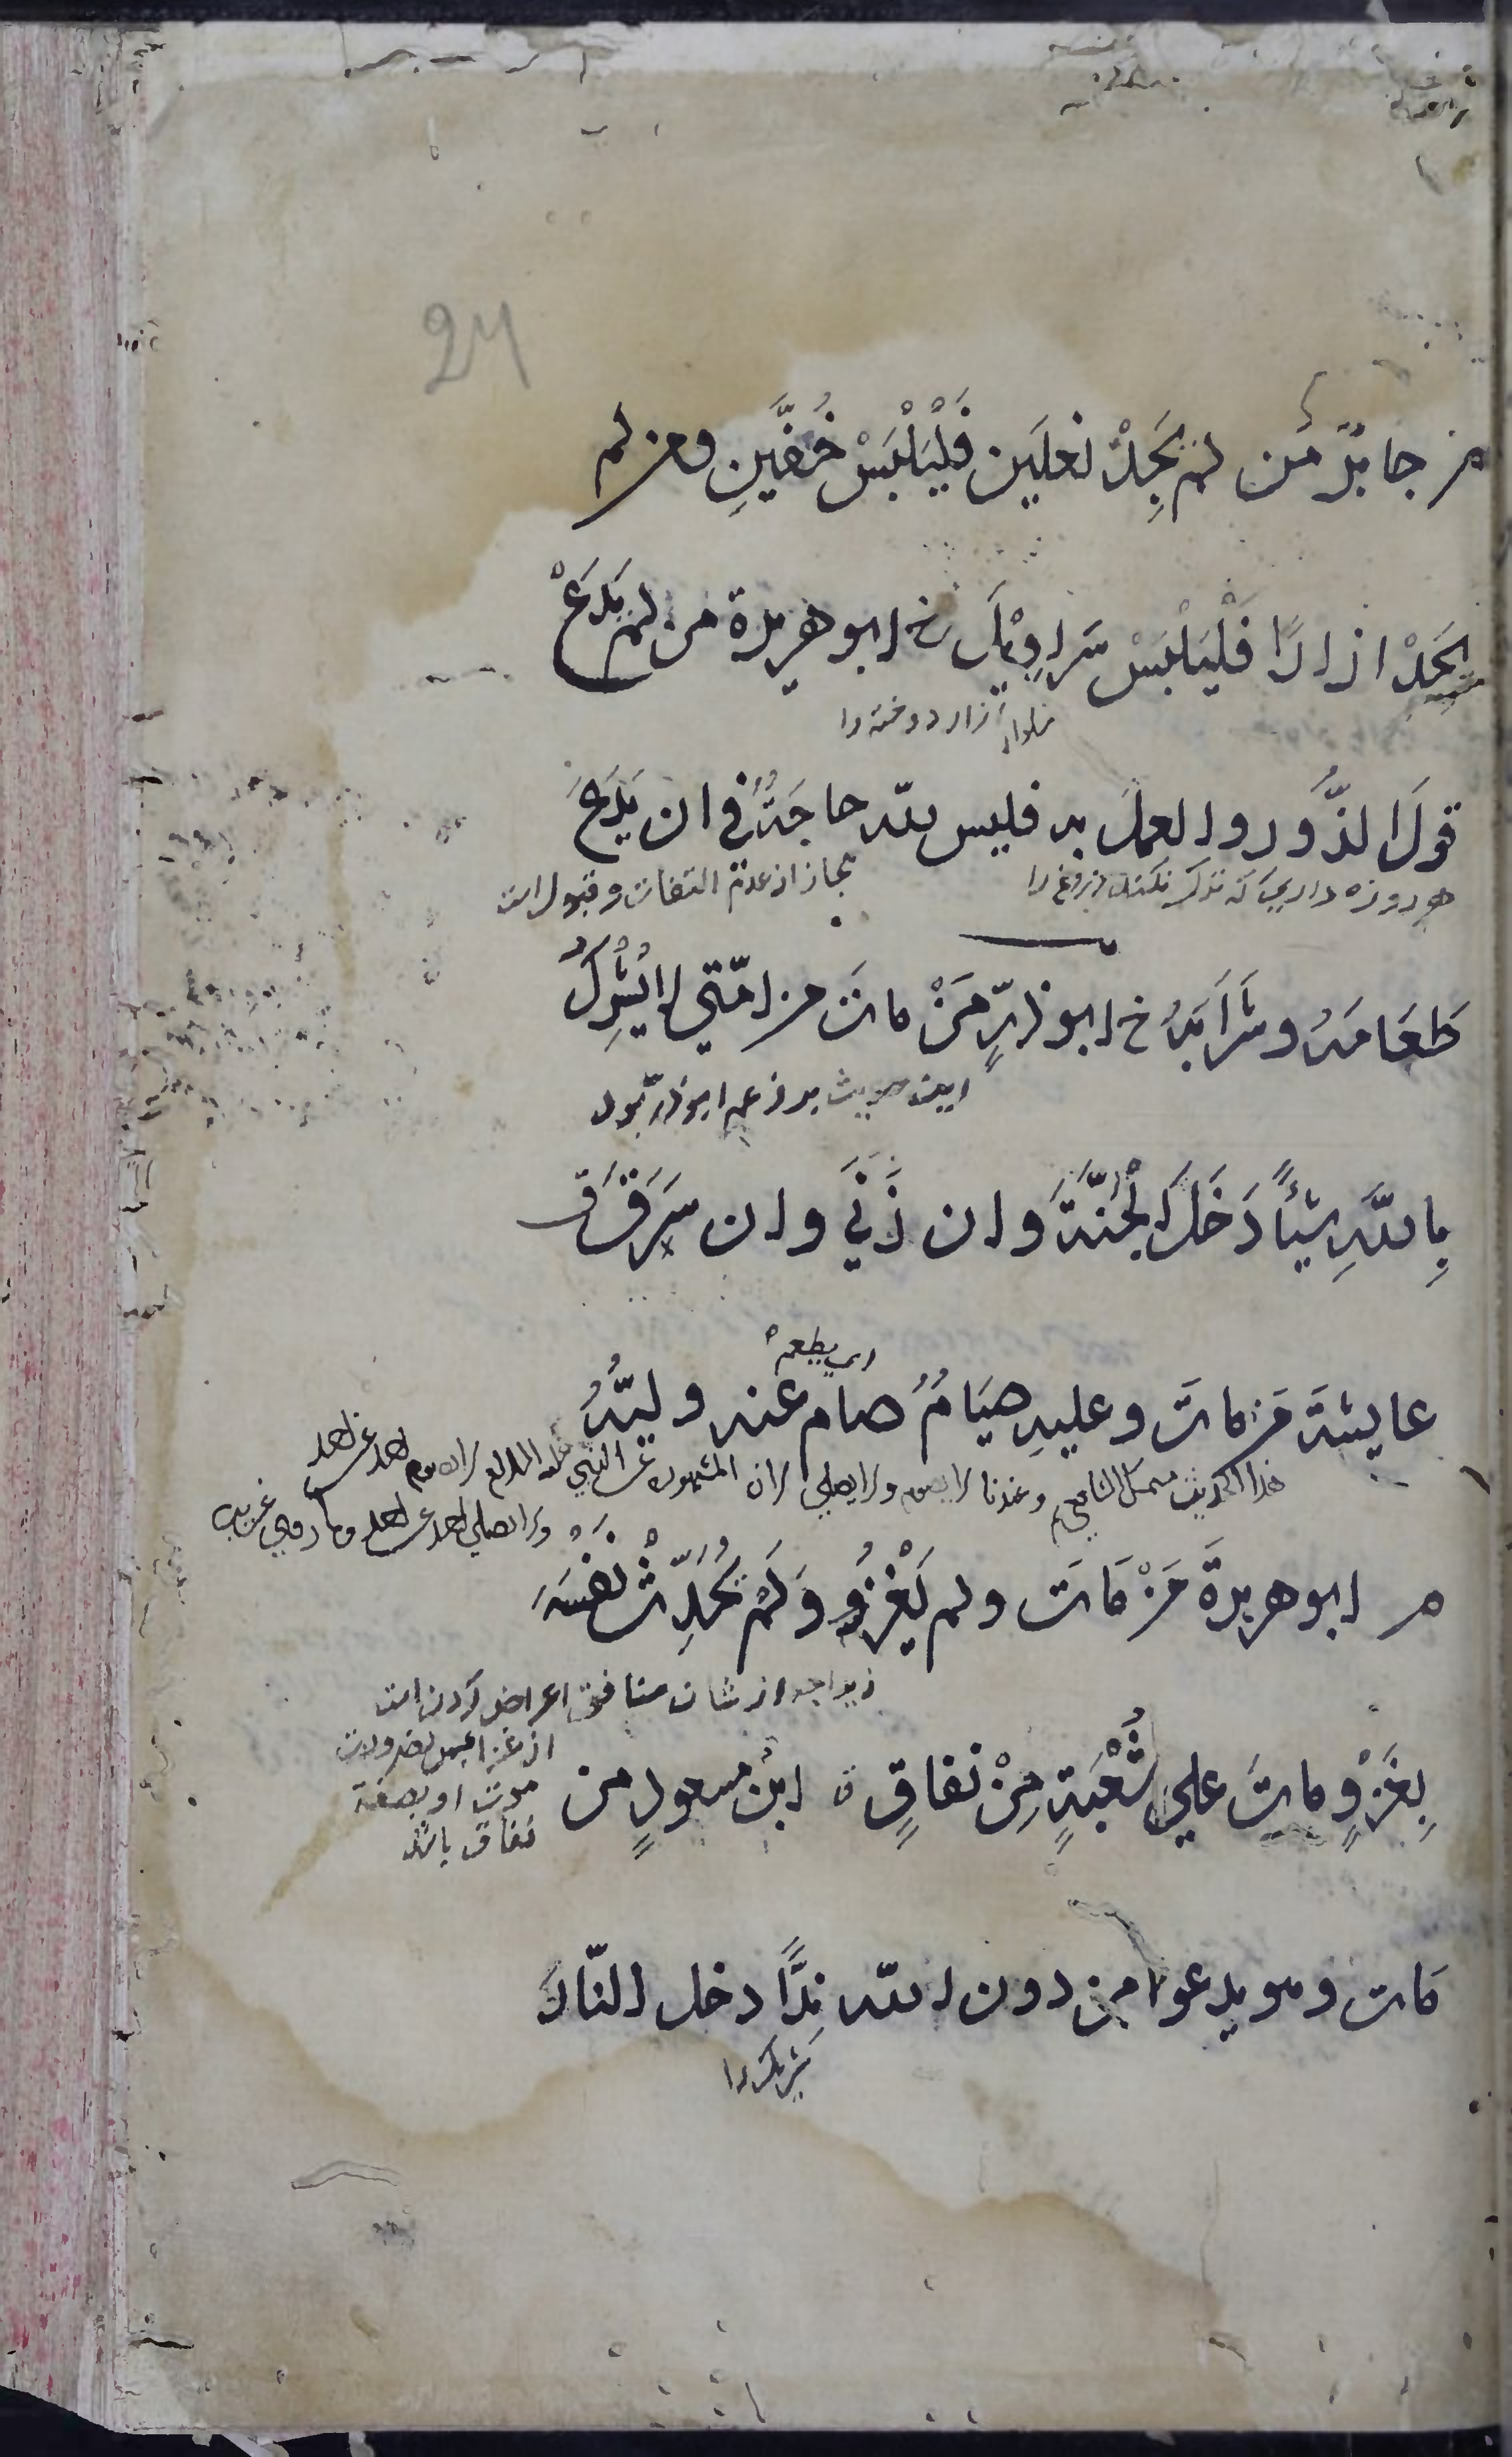 24
م جابرٌ مَن لم يَجِدْ نعلَين فَلْيَلْبَسْ خُفَّينِ ومن لم
يَجِدْ ازارًا فَلْيَلْبَسْ سَراوِيْلَ خ ابو هريرة من لم يَدَعْ
ازار دوخته را
قولَ الزُّور والعملَ به فليس لله حاجَةٌ في ان يَدَعَ
هر روزه داري كه ترك نكند دروغ را
مجاز از عدم التفات و قبول است
طَعَامَهُ وشَرابَهُ خ ابو ذرٍّ مَنْ مات من امّتي لا يُشْرِكُ
اين حديث بر زعم ابو ذر بود
بِاللهِ شيئًا دَخَلَ الْجَنَّةَ وان زَنَي وان سَرَقَ ق
اي يطعم
عايشةَ مَن ماتَ وعليهِ صِيَامٌ صام عنه وليُّهُ
هذا الحديث متمسك الشافعي وعندنا لا يصوم ولا يصلي لان المشهور عن النبي عليه السلام لا يصوم احد عن احد
ولا يصلي احد عن احد وما روي غريب
م ابو هريرةَ مَنْ مَاتَ ولم يَغْزُ وَلَمْ يُحَدِّثْ نَفْسَهُ
زيراچه از شان منافق اعراض كردن است
از غزا
موت او بصفة
نفاق باشد
بِغَزْوٍ ماتَ علي شُعْبَةٍ مِنْ نفاقٍ ق ابنُ مسعودٍ من
مَات وهو يدعوا من دون الله نِدًّا دخل النّارَ
شريك را